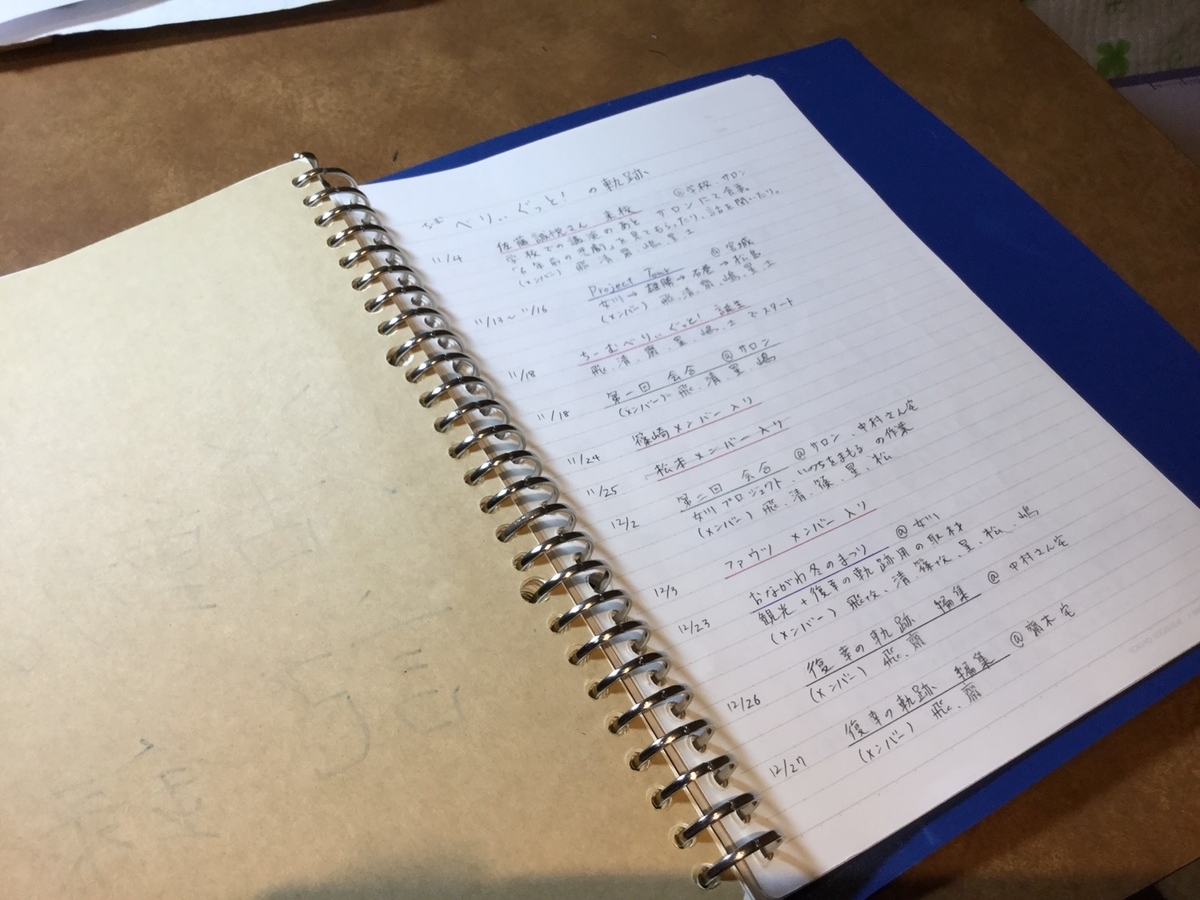 べりぃ ぐっと! の軌跡
11/4 佐藤 さん 来校 @学校 サロン
学校での講演のあと サロンにて会食
「6年前の」を見てもらったり、話を聞いたり。
(メンバー) 飛、清、齋、嶋、星、土
11/13〜11/16 Project Tour @宮城
女川→雄勝→石巻→松島
(メンバー) 飛、清、齋、嶋、星、土
11/18 ちーむべりぃ ぐっと! 誕生
飛、清、齋、星、嶋、土 でスタート
11/18 第一回 会合 @サロン
(メンバー) 飛、清、星、嶋
11/24 篠崎メンバー入り
11/25 松本メンバー入り
12/2 第二回 会合 @サロン、中村さん宅
女川プロジェクト、いのちをまもる の作業
(メンバー) 飛、清、篠、星、松
12/3 ファウツ メンバー入り
12/23 おながわ冬のまつり @女川
観光+復幸の軌跡用の取材
(メンバー) 飛、清、篠、星、松、嶋
12/26 復幸の軌跡 編集 @中村さん宅
(メンバー) 飛、齋
12/27 復幸の軌跡 編集 @齋木宅
(メンバー) 飛、齋